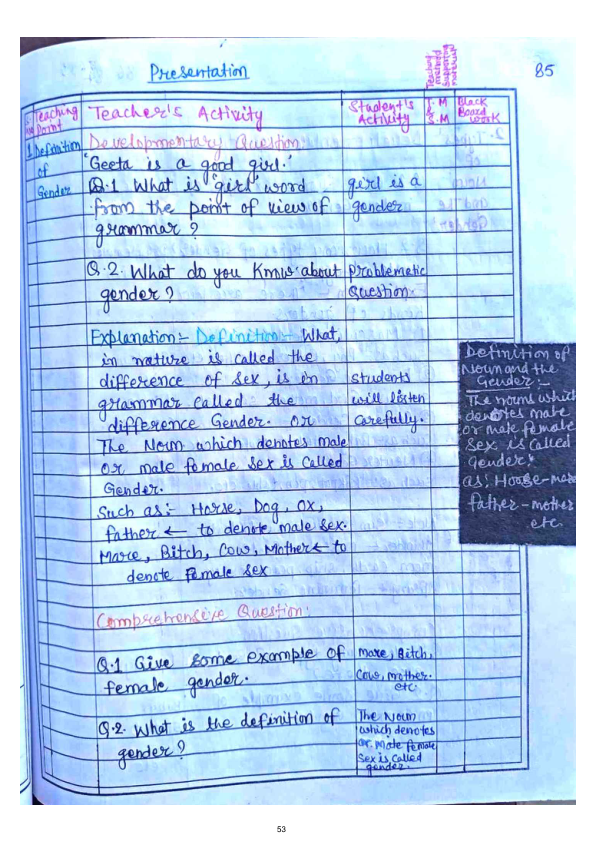 Presentation
85
S.No
Teaching Point
Teacher's Activity
Student's Activity
Teaching method & Supporting material
T.M & S.M
Black Board work
1. Definition
of
Gender
Developmentary Question
'Geeta is a good girl.'
Q.1 What is 'girl' word
from the point of view of
grammar?
girl is a
gender
Q.2. What do you Know about
gender?
Problematic
Question.
Explanation:- Definition:- What,
in nature is called the
difference of Sex, is in
grammar called the
difference Gender. or
The Noun which denotes male
or male female Sex is Called
Gender.
Students
will listen
Carefully.
Such as:- Horse, Dog, Ox,
father ← to denote male sex.
Mare, Bitch, Cow, Mother ← to
denote female sex
Definition of
Noun and the
Gender:-
The nouns which
denotes male
or male female
Sex is called
Gender.
as; Hoose-mare
father-mother
etc.
Comprehensive Question:
Q.1 Give some example of
female gender.
mare, Bitch,
Cow, mother.
etc.
Q.2. What is the definition of
gender?
The Noun
which denotes
or male female
Sex is called
gender.
53